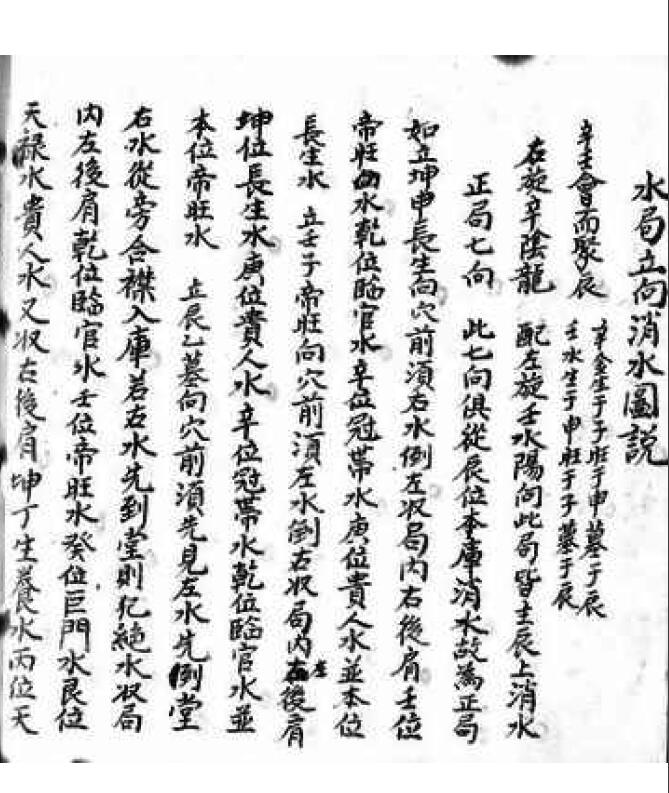 水局立向消水圖説
辛壬會而聚辰 辛金生于子旺于申墓于辰
壬水生于申旺于子墓于辰
右旋辛陰龍 配左旋壬水陽向此局皆主辰上消水
正局七向 此七向俱從辰位本庫消水故為正局
如立坤申長生向穴前須右水倒左収局内右後肩壬位
帝旺水乾位臨官水辛位冠帶水庚位貴人水並本位
長生水 立壬子帝旺向穴前須左水倒右収局内左後肩
坤位長生水庚位貴人水辛位冠帶水乾位臨官水並
本位帝旺水 立辰乙墓向穴前須先見左水先倒堂
右水從旁合襟入庫若右水先到堂則犯絶水収局
内左後肩乾位臨官水壬位帝旺水癸位巨門水艮位
天祿水貴人水又収右後肩坤丁生養水丙位天